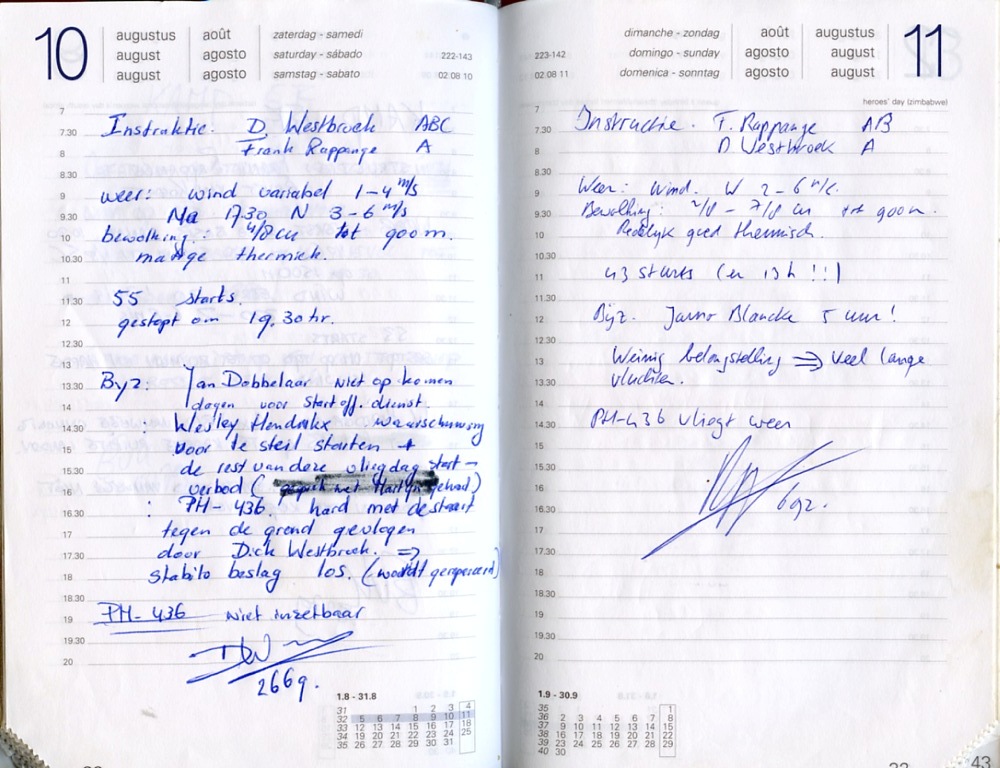 10
augustus août zaterdag - samedi
august agosto saturday - sábado 222-143
august agosto samstag - sabato 02.08 10
7
7.30 Instruktie: D. Westbroek ABC
8 Frank Rappange A
8.30
9 weer: wind variabel 1-4 m/s
9.30 Na 17.30 N 3-6 m/s
10 bewolking: 4/8 cu tot 900 m.
10.30 matige thermiek.
11
11.30 55 starts.
12 gestopt om 19.30 hr.
12.30
13
13.30 Byz: Jan Dobbelaar niet op komen
dagen voor startoff. dienst.
14
14.30 : Wesley Hendrikx waarschuwing
15 voor te steil starten +
15.30 de rest van deze vliegdag start-
16 verbod (
16.30 : PH-436. hard met de staart
17 tegen de grond gevlogen
17.30 door Dick Westbroek. =>
18 stabilo beslag los. (wordt gerepareerd)
18.30
19 PH-436 niet inzetbaar
19.30
20
2669.
1.8 - 31.8
31 1 2 3 4
32 5 6 7 8 9 10 11
33 12 13 14 15 16 17 18
34 19 20 21 22 23 24 25
35 26 27 28 29 30 31
11
dimanche - zondag août augustus
223-142 domingo - sunday agosto august
02.08 11 domenica - sonntag agosto august
heroes' day (zimbabwe)
7
7.30 Instructie. F. Rappange AB
8 D Westbroek A
8.30
9 Weer: Wind. W 2-6 m/s.
9.30 Bewolking: 2/8 - 7/8 cu tot 900 m.
10 Redelijk goed thermisch.
10.30
11 43 starts (en 13 h !!!)
11.30
12 Byz. Jarno Blancke 5 uur!
12.30
13 Weinig belangstelling => veel lange
13.30 vluchten.
14
14.30 PH-436 vliegt weer
15
15.30
16
16.30
17
17.30
18
18.30
19
19.30
20
1.9 - 30.9
35 1
36 2 3 4 5 6 7 8
37 9 10 11 12 13 14 15
38 16 17 18 19 20 21 22
39 23 24 25 26 27 28 29
40 30
43